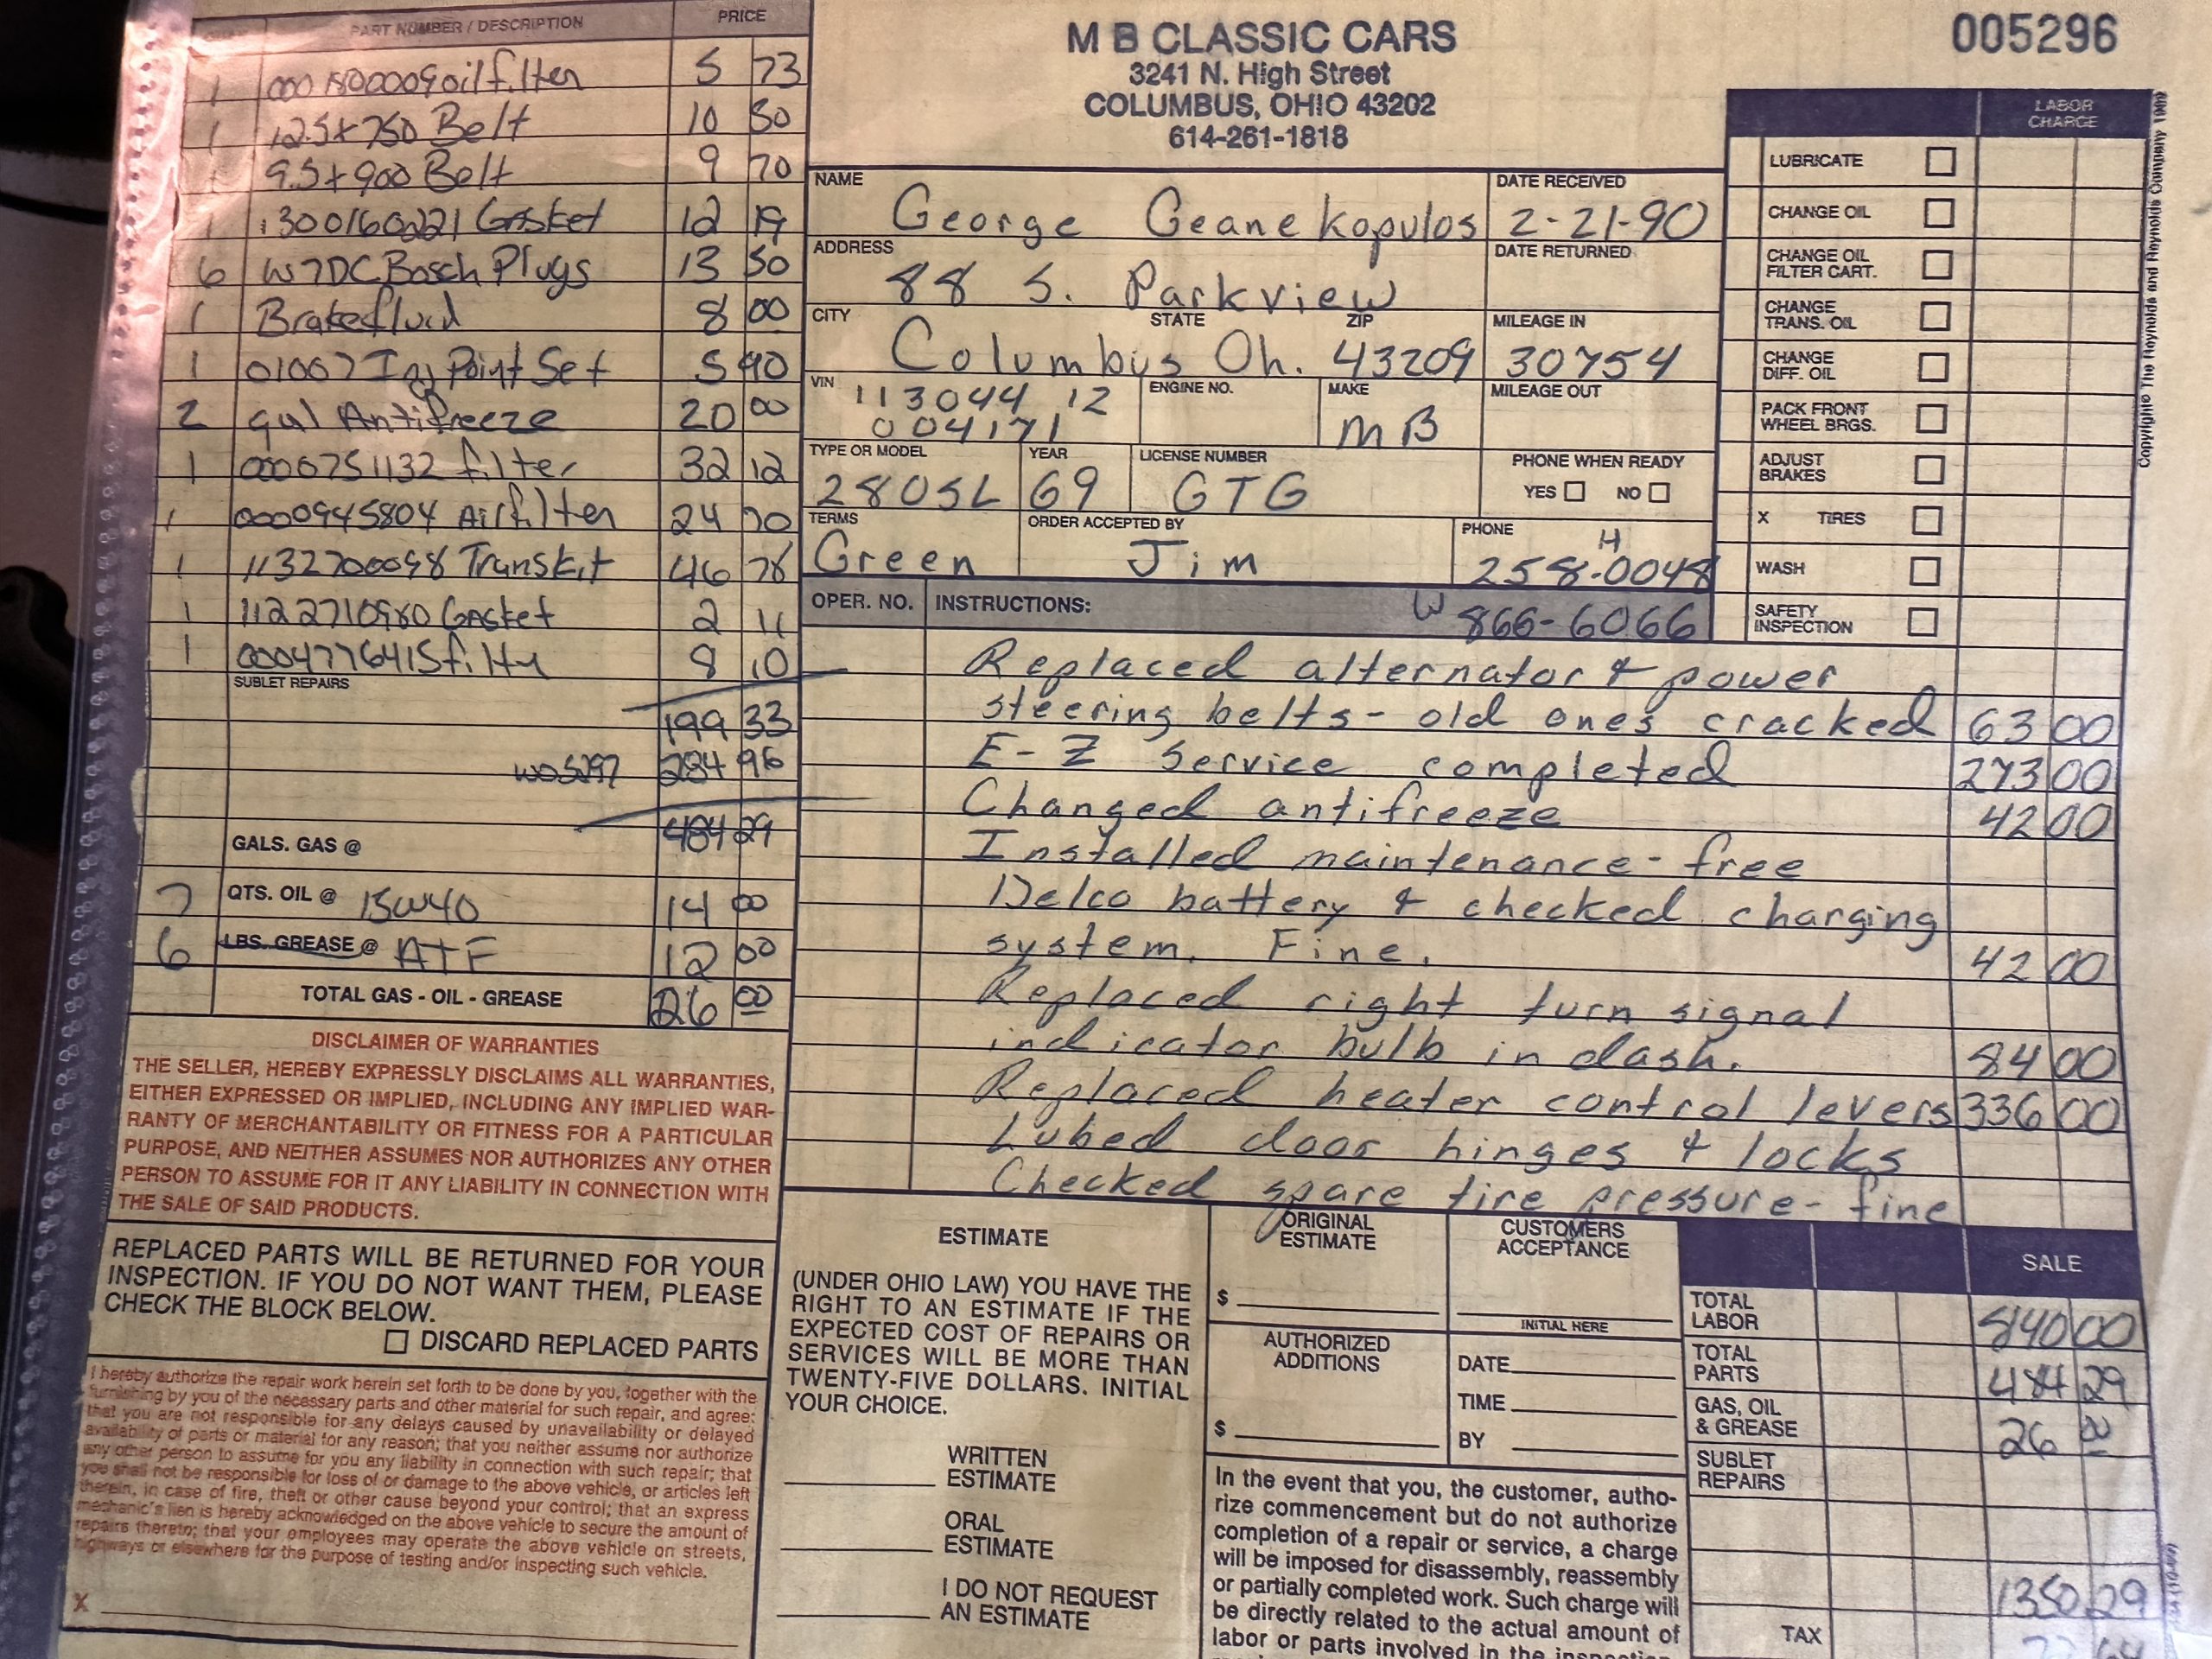 PART NUMBER / DESCRIPTION PRICE
1 0001800009 oil filter 5 73
1 12.5x750 Belt 10 50
1 9.5x900 Belt 9 70
1 1300160221 Gasket 12 19
6 W7DC Bosch Plugs 13 50
1 Brakefluid 8 00
1 01007 Ing Point Set 5 90
2 gal Antifreeze 20 00
1 0000751132 filter 32 12
1 0000945804 Airfilter 24 70
1 1132700098 Transkit 46 78
1 1122710980 Gasket 2 11
1 0004776415 filter 8 10
SUBLET REPAIRS
199 33
WO5297 284 96
484 29
GALS. GAS @
7 QTS. OIL @ 15W40 14 00
6 LBS. GREASE @ ATF 12 00
TOTAL GAS - OIL - GREASE 26 00
DISCLAIMER OF WARRANTIES
THE SELLER, HEREBY EXPRESSLY DISCLAIMS ALL WARRANTIES,
EITHER EXPRESSED OR IMPLIED, INCLUDING ANY IMPLIED WAR-
RANTY OF MERCHANTABILITY OR FITNESS FOR A PARTICULAR
PURPOSE, AND NEITHER ASSUMES NOR AUTHORIZES ANY OTHER
PERSON TO ASSUME FOR IT ANY LIABILITY IN CONNECTION WITH
THE SALE OF SAID PRODUCTS.
REPLACED PARTS WILL BE RETURNED FOR YOUR
INSPECTION. IF YOU DO NOT WANT THEM, PLEASE
CHECK THE BLOCK BELOW.
DISCARD REPLACED PARTS
I hereby authorize the repair work herein set forth to be done by you, together with the
furnishing by you of the necessary parts and other material for such repair, and agree;
that you are not responsible for any delays caused by unavailability or delayed
availability of parts or material for any reason; that you neither assume nor authorize
any other person to assume for you any liability in connection with such repair; that
you shall not be responsible for loss of or damage to the above vehicle, or articles left
therein, in case of fire, theft or other cause beyond your control; that an express
mechanic's lien is hereby acknowledged on the above vehicle to secure the amount of
repairs thereto; that your employees may operate the above vehicle on streets,
highways or elsewhere for the purpose of testing and/or inspecting such vehicle.
X
M B CLASSIC CARS
3241 N. High Street
COLUMBUS, OHIO 43202
614-261-1818
005296
NAME George Geanekopulos
DATE RECEIVED 2-21-90
ADDRESS 88 S. Parkview
DATE RETURNED
CITY STATE ZIP
Columbus Oh. 43209
MILEAGE IN 30754
VIN 113044 12
004171
ENGINE NO.
MAKE MB
MILEAGE OUT
TYPE OR MODEL 280SL
YEAR 69
LICENSE NUMBER GTG
PHONE WHEN READY
YES NO
TERMS Green
ORDER ACCEPTED BY Jim
PHONE H 258-0048
OPER. NO. INSTRUCTIONS: W 866-6066
Replaced alternator & power
steering belts - old ones cracked 63 00
E-Z Service completed 273 00
Changed antifreeze 42 00
Installed maintenance-free
Delco battery & checked charging
system. Fine. 42 00
Replaced right turn signal
indicator bulb in dash. 84 00
Replaced heater control levers 336 00
Lubed door hinges & locks
Checked spare tire pressure - fine
LABOR
CHARGE
LUBRICATE
CHANGE OIL
CHANGE OIL
FILTER CART.
CHANGE
TRANS. OIL
CHANGE
DIFF. OIL
PACK FRONT
WHEEL BRGS.
ADJUST
BRAKES
X TIRES
WASH
SAFETY
INSPECTION
ESTIMATE
(UNDER OHIO LAW) YOU HAVE THE
RIGHT TO AN ESTIMATE IF THE
EXPECTED COST OF REPAIRS OR
SERVICES WILL BE MORE THAN
TWENTY-FIVE DOLLARS. INITIAL
YOUR CHOICE.
WRITTEN
ESTIMATE
ORAL
ESTIMATE
I DO NOT REQUEST
AN ESTIMATE
ORIGINAL
ESTIMATE
$
AUTHORIZED
ADDITIONS
$
CUSTOMERS
ACCEPTANCE
INITIAL HERE
DATE
TIME
BY
In the event that you, the customer, autho-
rize commencement but do not authorize
completion of a repair or service, a charge
will be imposed for disassembly, reassembly
or partially completed work. Such charge will
be directly related to the actual amount of
labor or parts involved in the inspection
SALE
TOTAL
LABOR 840 00
TOTAL
PARTS 484 29
GAS, OIL
& GREASE 26 00
SUBLET
REPAIRS
1350 29
TAX